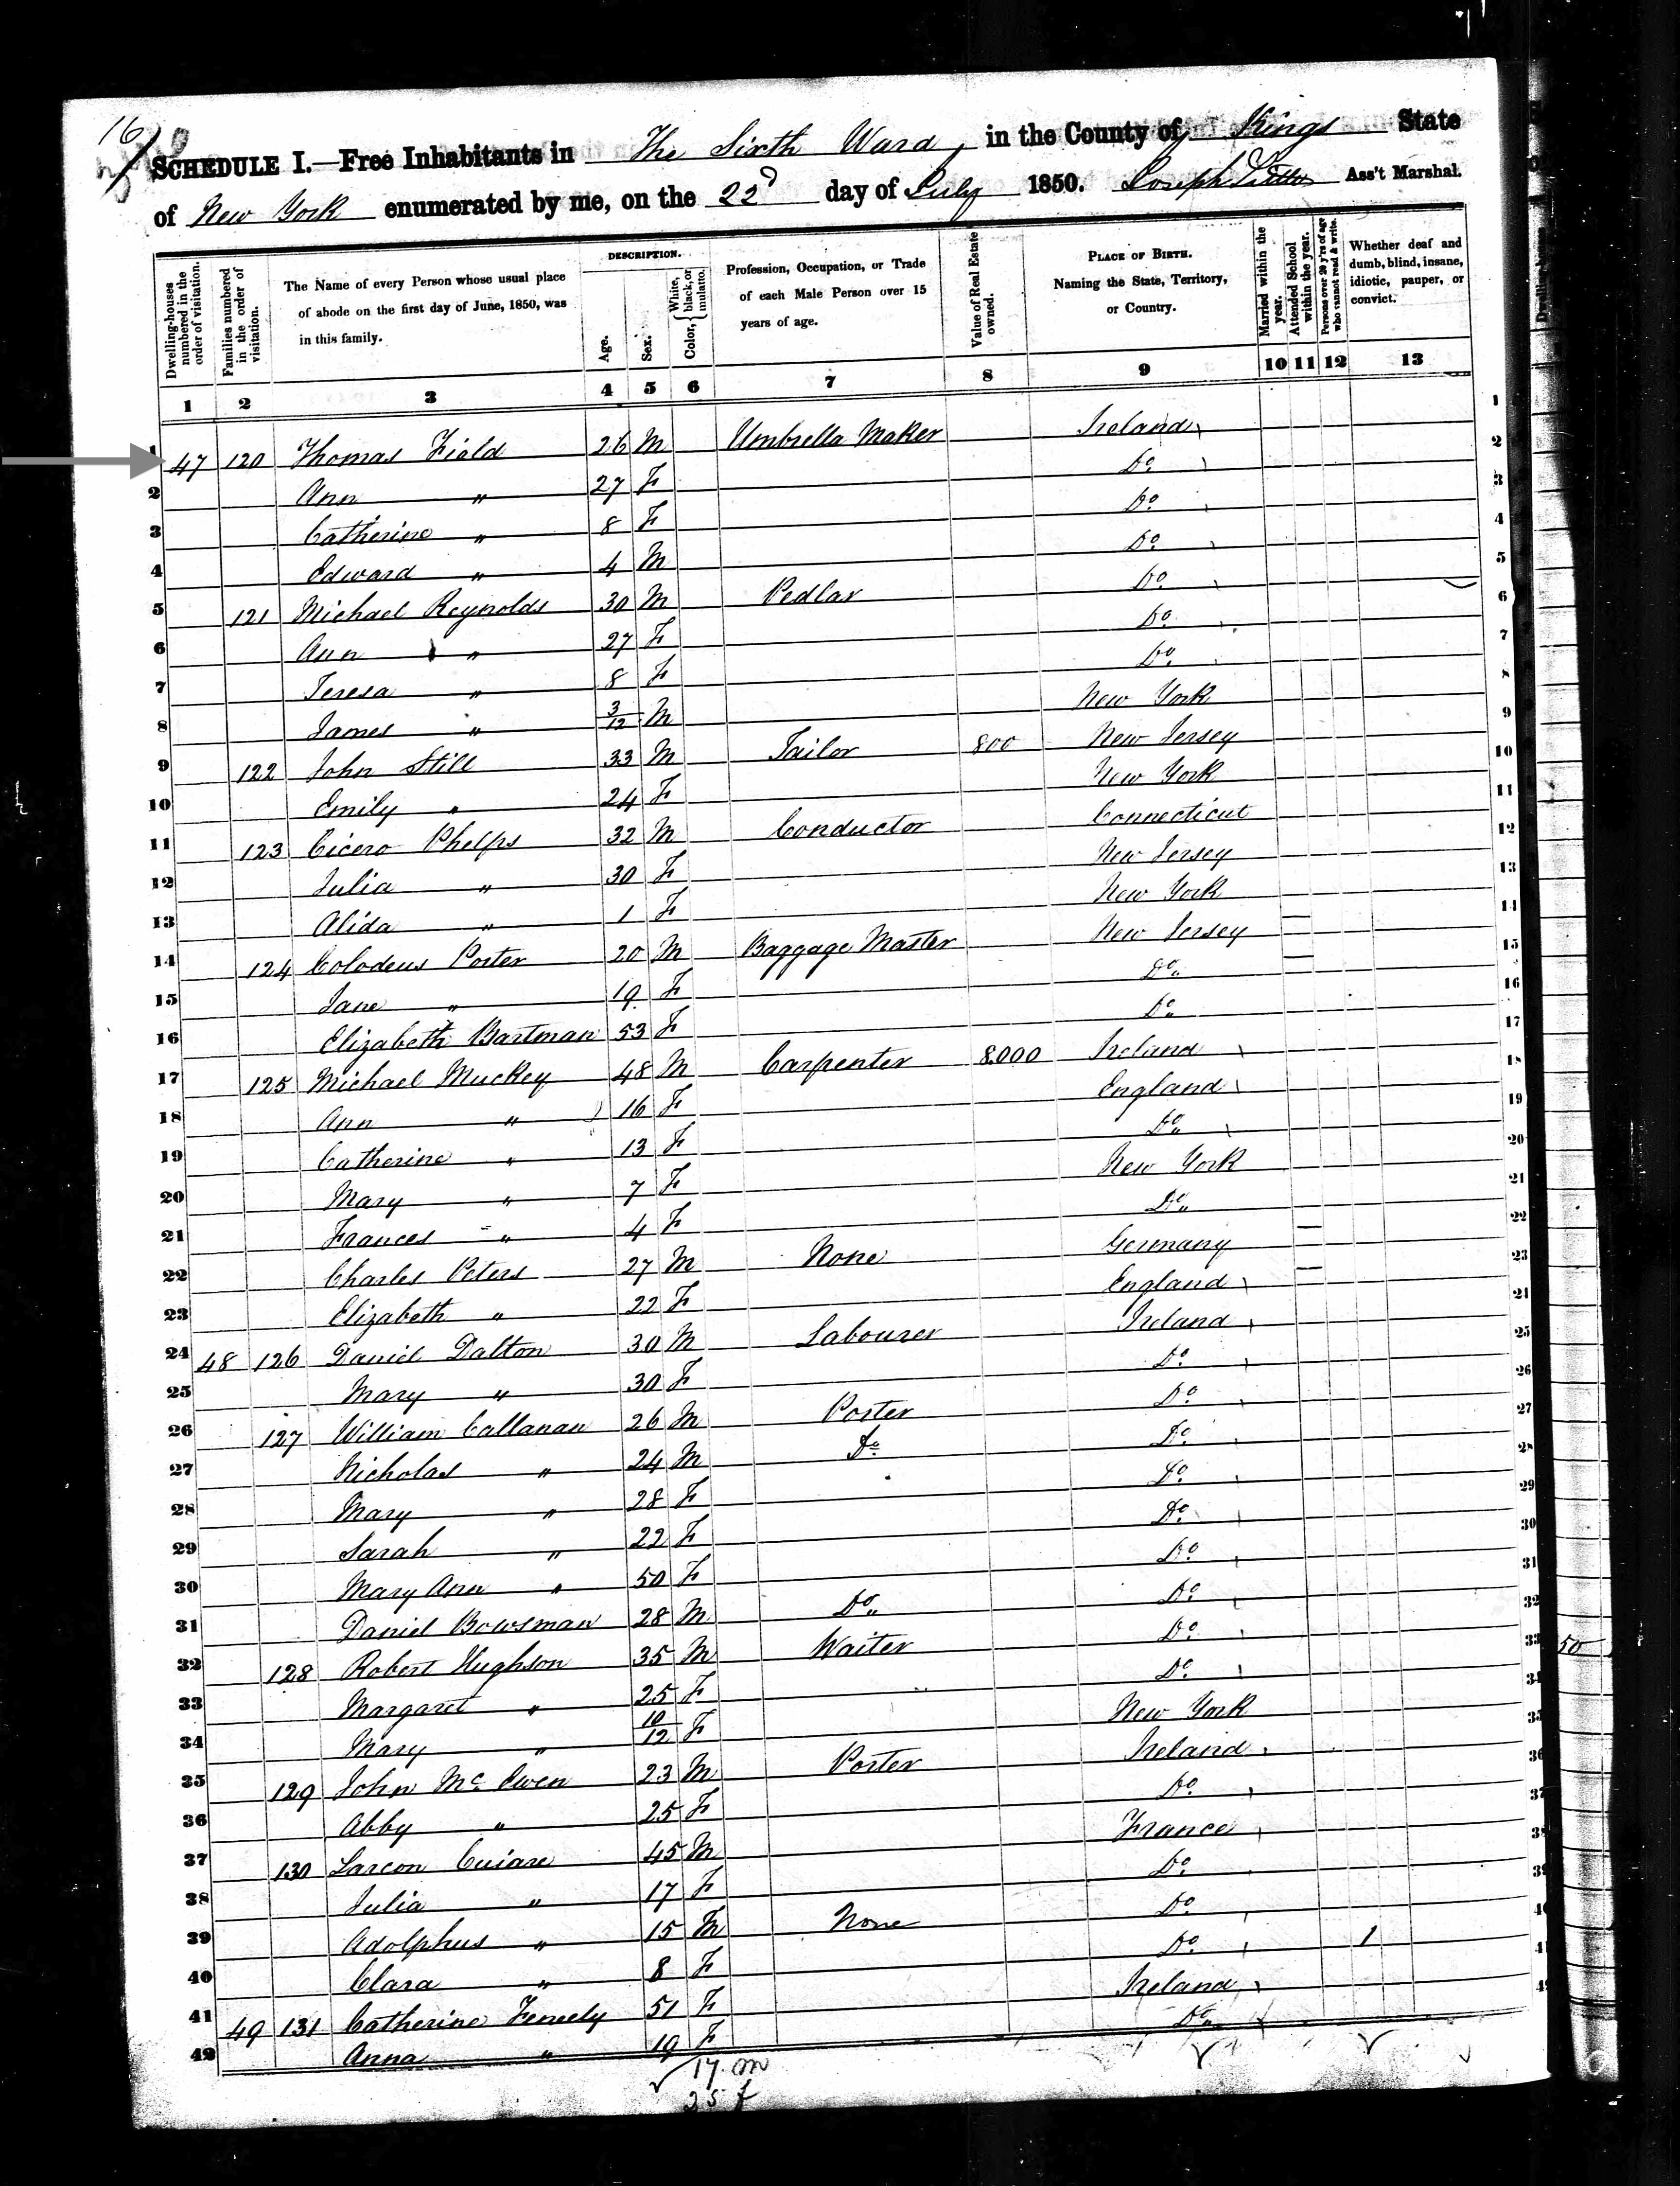 16
SCHEDULE I.—Free Inhabitants in The Sixth Ward, in the County of Kings State
of New York enumerated by me, on the 22d day of July 1850. Joseph Ass't Marshal.
Dwelling-houses numbered in the order of visitation.
Families numbered in the order of visitation.
The Name of every Person whose usual place of abode on the first day of June, 1850, was in this family.
DESCRIPTION.
Age.
Sex.
Color, { White, black, or mulatto.
Profession, Occupation, or Trade of each Male Person over 15 years of age.
Value of Real Estate owned.
PLACE OF BIRTH. Naming the State, Territory, or Country.
Married within the year.
Attended School within the year.
Persons over 20 y'rs of age who cannot read & write.
Whether deaf and dumb, blind, insane, idiotic, pauper, or convict.
1 2 3 4 5 6 7 8 9 10 11 12 13
1 47 120 Thomas Field 26 M Umbrella Maker Ireland 1
2 Ann " 27 F Do 2
3 Catherine " 8 F Do 3
4 Edward " 4 M Do 4
5 121 Michael Reynolds 30 M Pedlar Do 5
6 Ann " 27 F Do 6
7 Teresa " 8 F Do 7
8 James " 3/12 M New York 8
9 122 John Still 33 M Tailor 800 New Jersey 9
10 Emily " 24 F New York 10
11 123 Cicero Phelps 32 M Conductor Connecticut 11
12 Julia " 30 F New Jersey 12
13 Alida " 1 F New York 13
14 124 Colodeus Porter 20 M Baggage Master New Jersey 14
15 Jane " 19 F Do 15
16 Elizabeth Bartman 53 F Do 16
17 125 Michael Muckey 48 M Carpenter 8000 Ireland 17
18 Ann " 16 F England 18
19 Catherine " 13 F Do 19
20 Mary " 7 F New York 20
21 Frances " 4 F Do 21
22 Charles Peters 27 M None Germany 22
23 Elizabeth " 22 F England 23
24 48 126 David Dalton 30 M Labourer Ireland 24
25 Mary " 30 F Do 25
26 127 William Callanan 26 M Porter Do 26
27 Nicholas " 24 M Do Do 27
28 Mary " 28 F Do 28
29 Sarah " 22 F Do 29
30 Mary Ann " 50 F Do 30
31 Daniel Bowsman 28 M Do Do 31
32 128 Robert Hughson 35 M Waiter Do 32
33 Margaret " 25 F Do 33
34 Mary " 10/12 F New York 34
35 129 John McEwen 23 M Porter Ireland 35
36 Abby " 25 F Do 36
37 130 45 M France 37
38 Julia " 17 F Do 38
39 Adolphus " 15 M None Do 39
40 Clara " 8 F Do 1 40
41 49 131 Catherine Feneely 51 F Ireland 41
42 Anna " 19 F Do 42
17 m
25 f
50